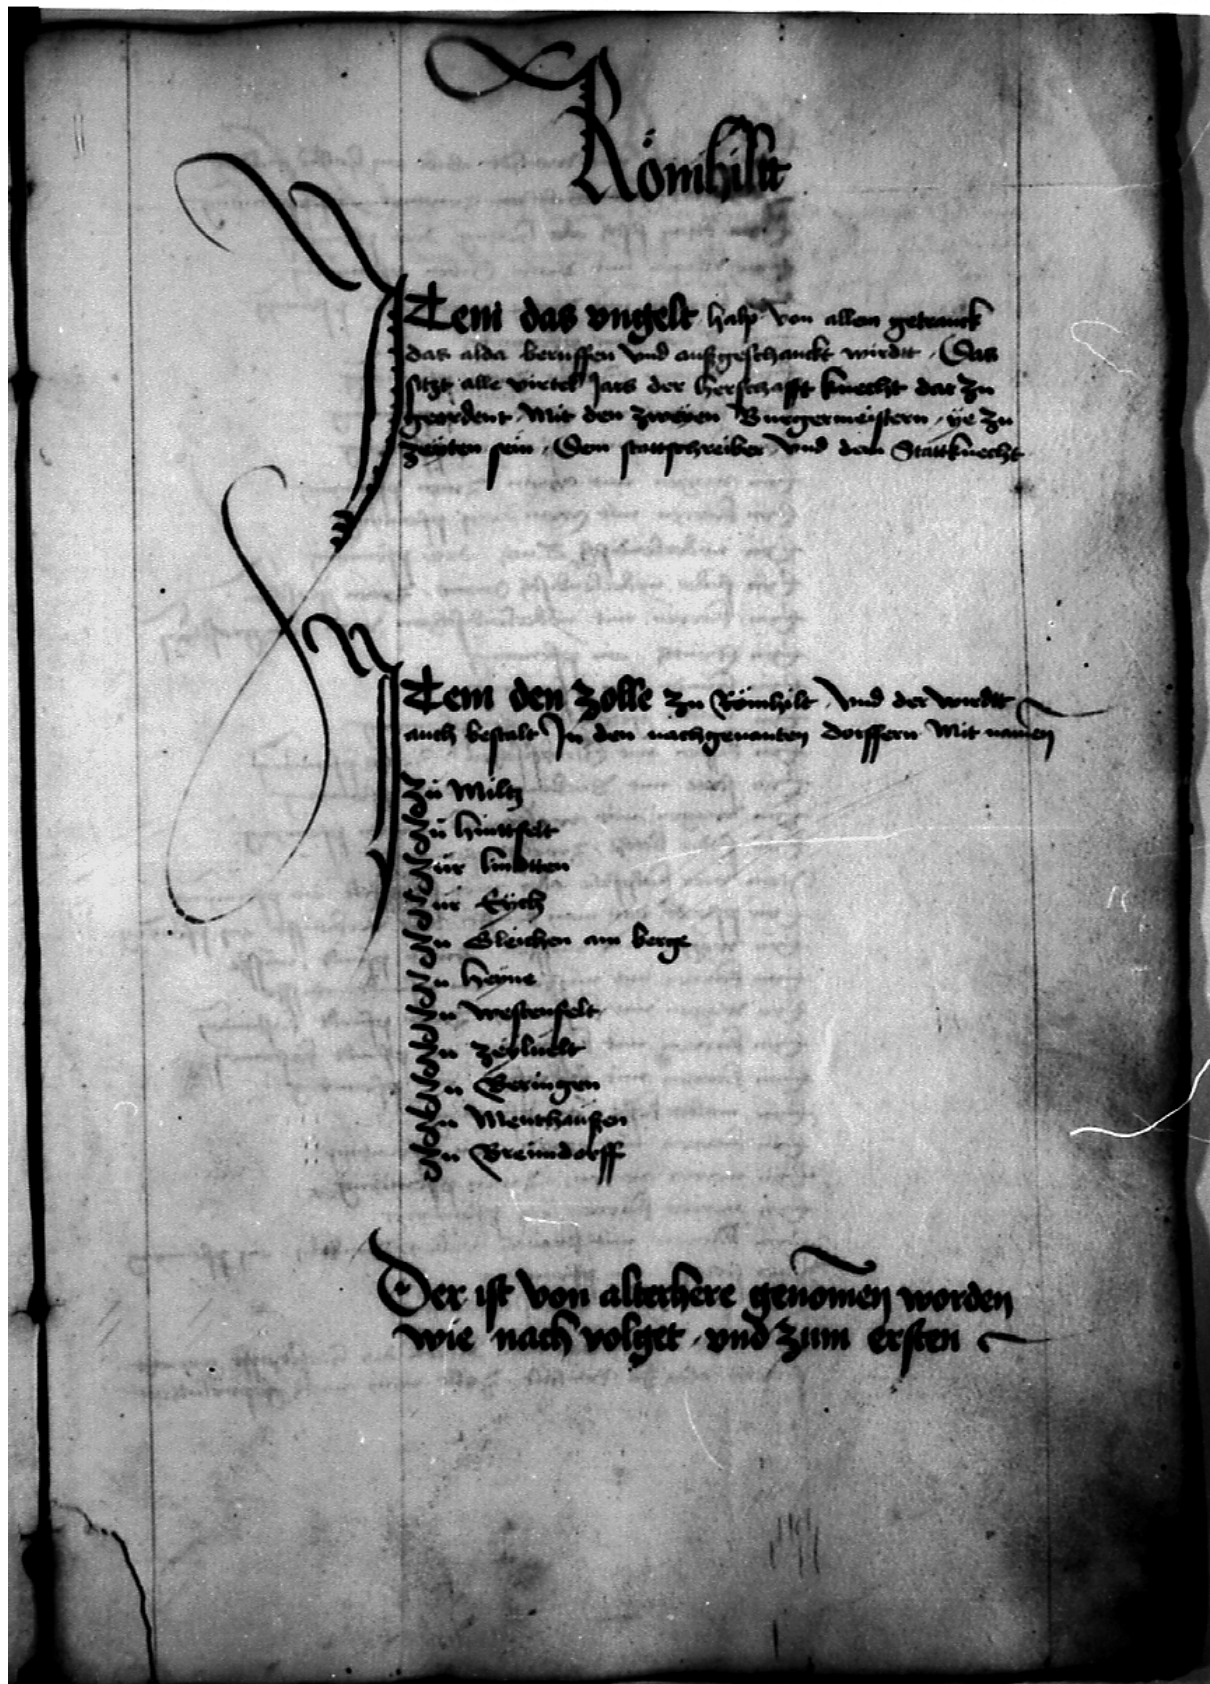 Römhilt
Item das vngelt halp von allem getranck
das alda beruffen vnd außgeschanckt wirdtt . Das
sitzt alle virtel Jars der herschafft knecht dar zu
geordent . Mit den zweyen Burgermeistern , ye zu
zeytten sein . Dem stattschreiber vnd dem Stattknecht
Item den zolle zu Römhilt , vnd der wirdtt
auch bestalt Jn den nachgenanten dorffern Mit namen
Zu Miltz
Zu hinttfelt
Zur lindtten
Zur Eÿch
Zu Gleichen am berge
Zu heyne
Zu westenfelt
Zu zeyluelt
Zu Beringen
Zu Menthaußen
Zu Breundorff
Der ist von alterhere genomen worden
wie nach volget , vnd zum ersten